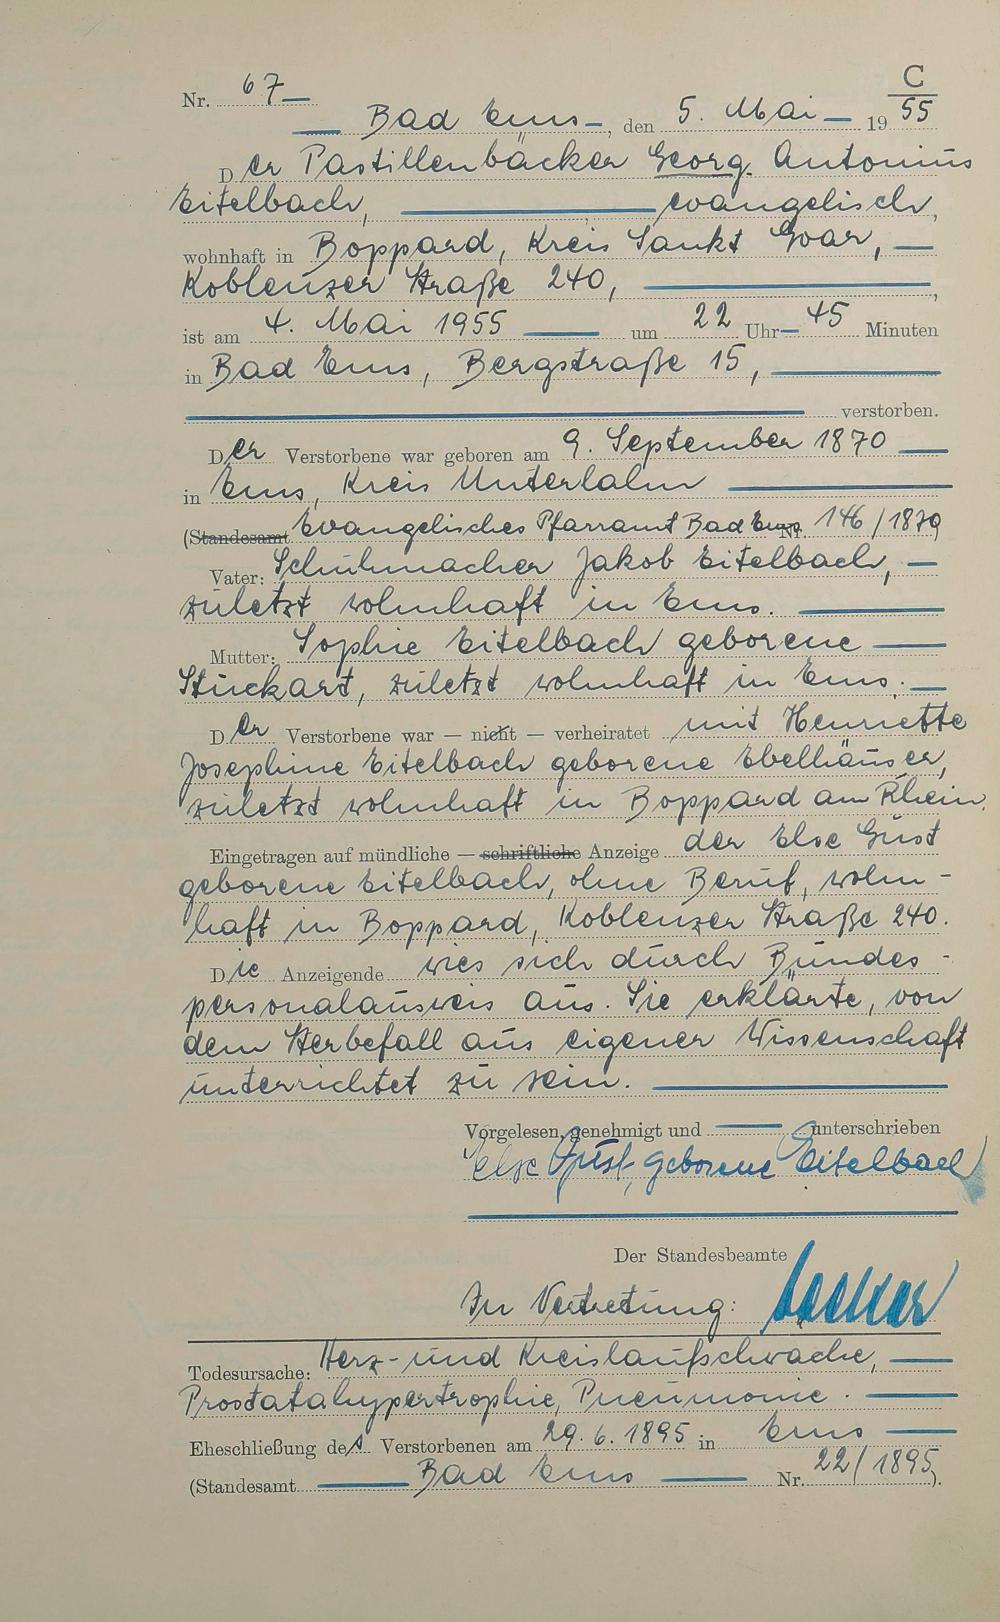 C
Nr. 67
Bad Ems, den 5. Mai 1955
Der Pastillenbäcker Georg Antonius
Eitelbach, evangelisch,
wohnhaft in Boppard, Kreis Sankt Goar,
Koblenzer Straße 240,
ist am 4. Mai 1955 um 22 Uhr 45 Minuten
in Bad Ems, Bergstraße 15,
verstorben.
Der Verstorbene war geboren am 9. September 1870
in Ems, Kreis Unterlahn
(Standesamt Evangelisches Pfarramt Bad Ems Nr. 146/1870)
Vater: Schuhmacher Jakob Eitelbach,
zuletzt wohnhaft in Ems.
Mutter: Sophie Eitelbach geborene
Stuckart, zuletzt wohnhaft in Ems.
Der Verstorbene war — nicht — verheiratet mit Henriette
Josephine Eitelbach geborene Ebelhäuser,
zuletzt wohnhaft in Boppard am Rhein.
Eingetragen auf mündliche — schriftliche Anzeige der Else Gust
geborene Eitelbach, ohne Beruf, wohn-
haft in Boppard, Koblenzer Straße 240.
Die Anzeigende wies sich durch Bundes-
personalausweis aus. Sie erklärte, von
dem Sterbefall aus eigener Wissenschaft
unterrichtet zu sein.
Vorgelesen, genehmigt und unterschrieben
Else Gust, geborene Eitelbach
Der Standesbeamte
In Vertretung:
Todesursache: Herz- und Kreislaufschwäche,
Prostatahypertrophie, Pneumonie.
Eheschließung des Verstorbenen am 29.6.1895 in Ems
(Standesamt Bad Ems Nr. 22/1895).